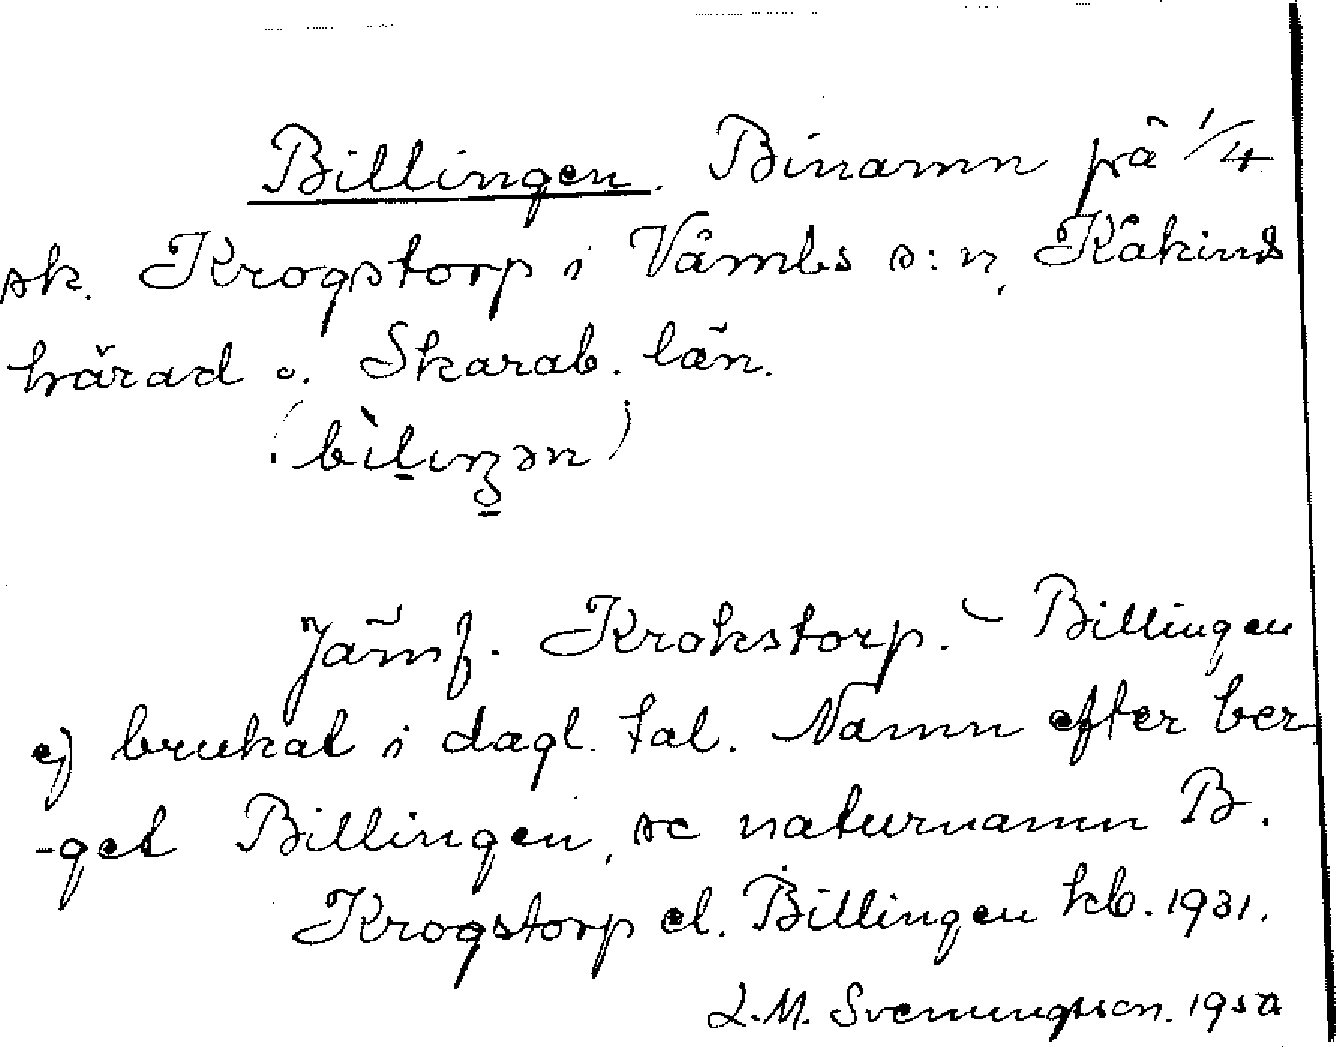 Billingen. Binamn på 1/4
sk. Krogstorp i Våmbs s:n, Kåkinds
härad o. Skarab. län.
Jämf. Krokstorp. – Billingen
ej brukat i dagl. tal. Namn efter ber
-get Billingen, se naturnamn B.
Krogstorp el. Billingen kb. 1931.
L.M. Svenungsson.